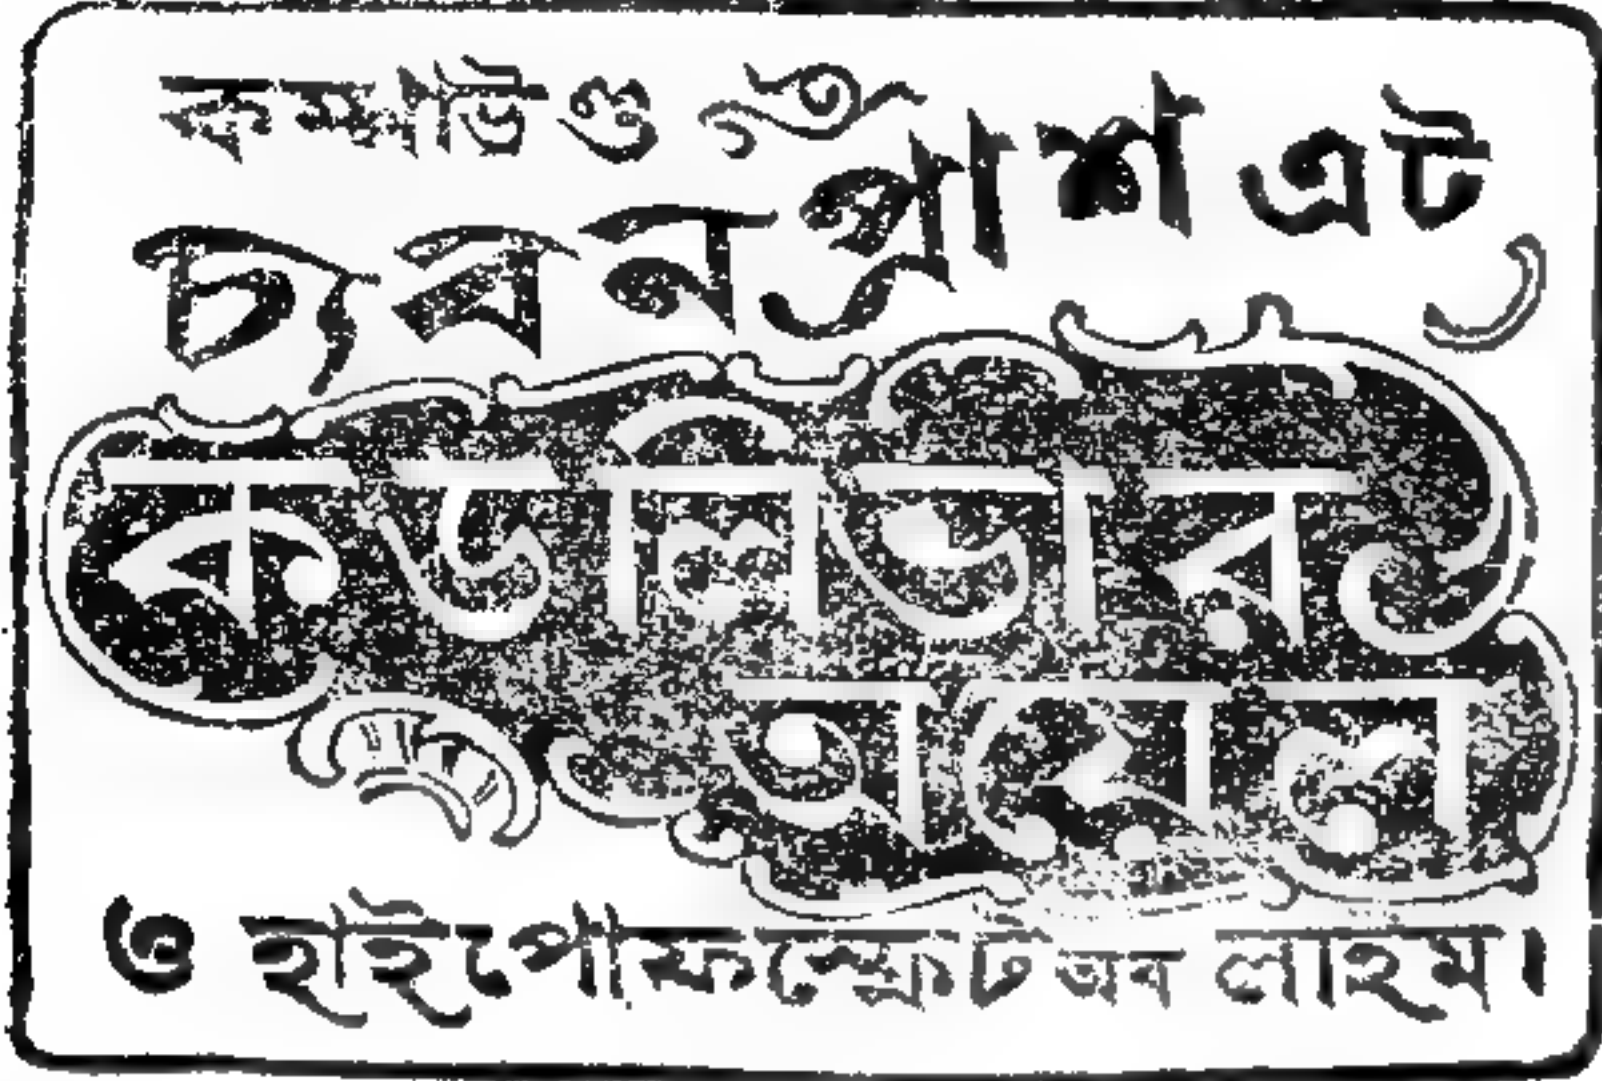 কম্পাউণ্ড
চ্যবনপ্রাশ এট
কডলিভার
অয়েল
ও হাইপোফস্ফেট অব লাইম।